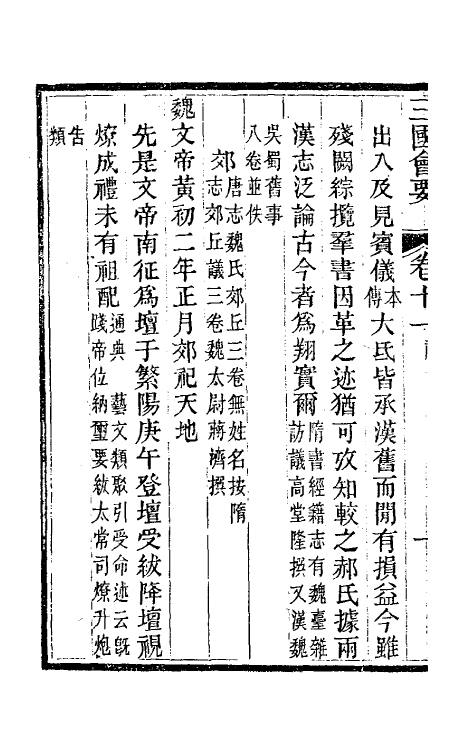 三國會要 卷十一 禮
出入及見賓儀本傳大氐皆承漢舊而閒有損益今雖
殘闕綜攬羣書因革之迹猶可攷知較之郝氏據兩
漢志泛論古今者爲翔實爾隋書經籍志有魏臺雜訪議高堂隆撰又漢魏
吳蜀舊事八卷並佚
郊唐志魏氏郊丘三卷無姓名按隋志郊丘議三卷魏太尉蔣濟撰
魏文帝黃初二年正月郊祀天地
先是文帝南征爲壇于繁陽庚午登壇受紱降壇視
燎成禮未有祖配通典 藝文類聚引受命述云旣踐帝位納璽要紱太常司燎升炮
告類